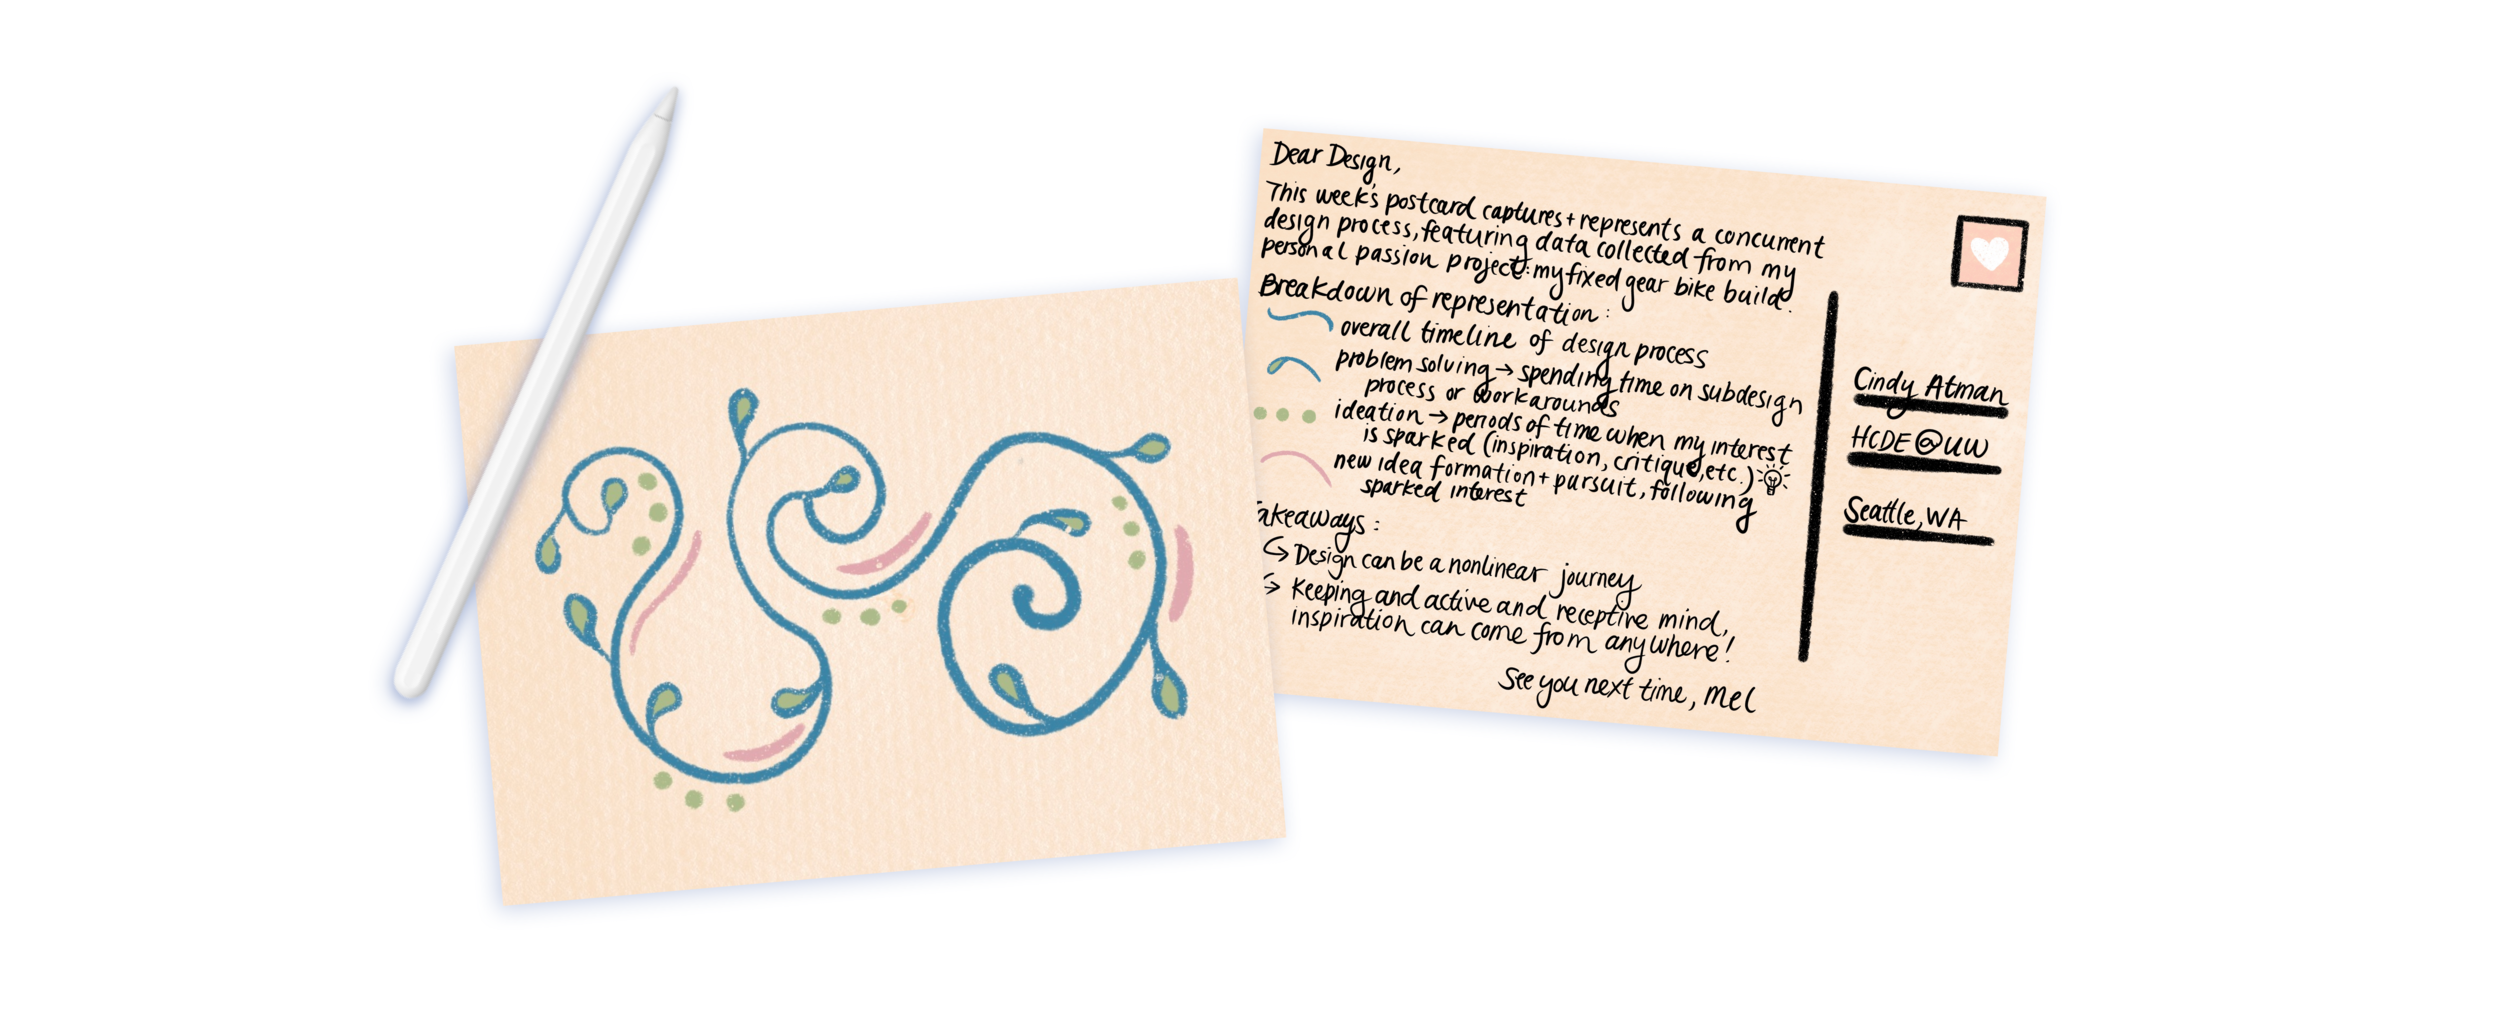 Dear Design,
This week's postcard captures + represents a concurrent
design process, featuring data collected from my
personal passion project: my fixed gear bike build.
Breakdown of representation:
overall timeline of design process
problem solving → spending time on subdesign
process or workarounds
ideation → periods of time when my interest
is sparked (inspiration, critique, etc.)
new idea formation + pursuit, following
sparked interest
akeaways:
↪ Design can be a nonlinear journey
↪ Keeping and active and receptive mind,
inspiration can come from anywhere!
See you next time, Mel
Cindy Atman
HCDE @ UW
Seattle, WA